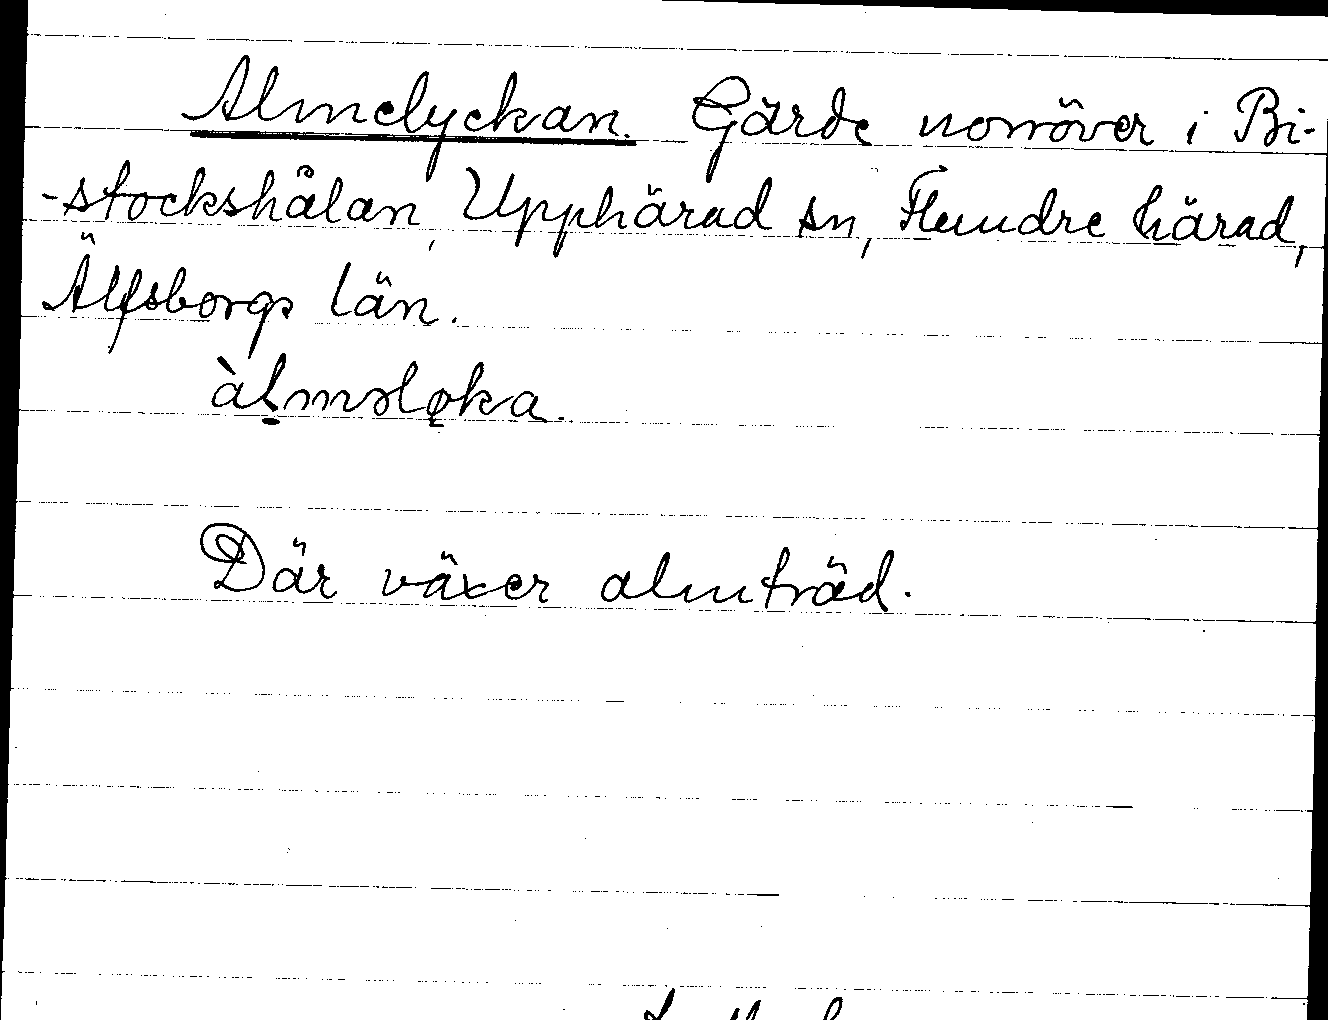 Almelyckan. Gärde norröver i Bi-
-stockshålan, Upphärad sn, Flundre härad,
Älfsborgs län.
àḷmələ̨ka.
Där växer almträd.